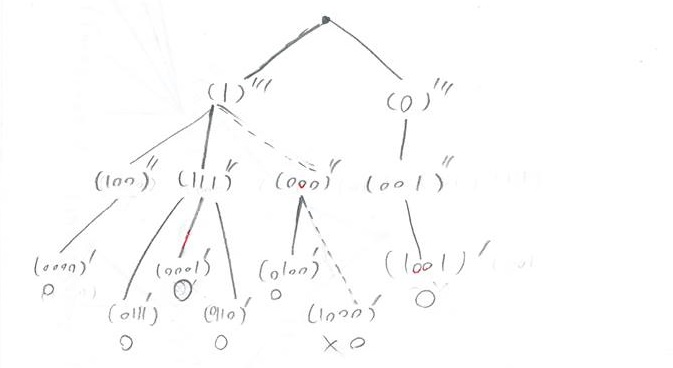 (1)''' (0)'''
(100)'' (111)'' (000)'' (001)''
(0000)' (0001)' (0100)' (1001)'
0 0 0 0
(0111)' (0110)' (1000)'
0 0 X 0